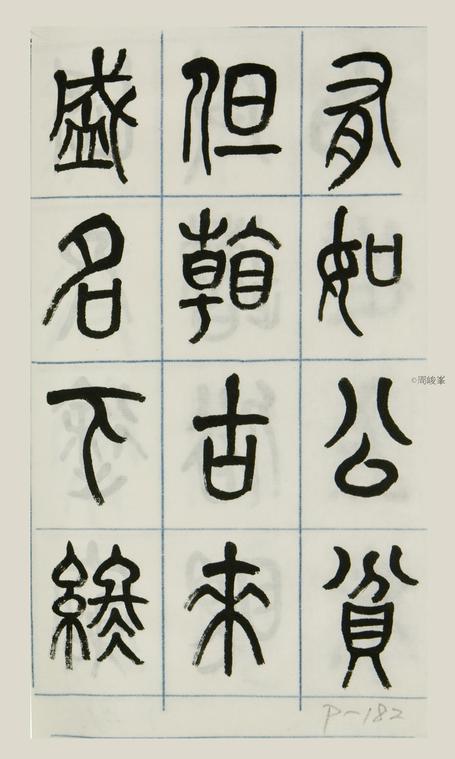 有如公貧
但看古來
盛名下終
©周峻峯
P-182